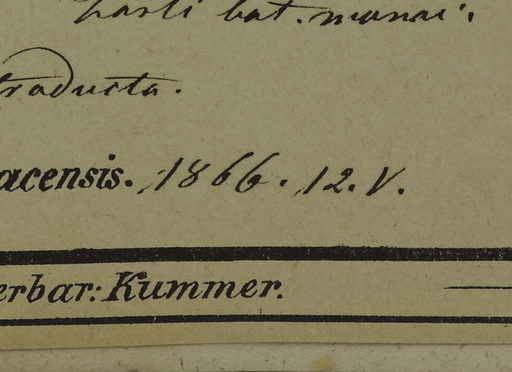 horti bot. monac.
traducta.
acensis. 1866. 12. V.
erbar: Kummer.